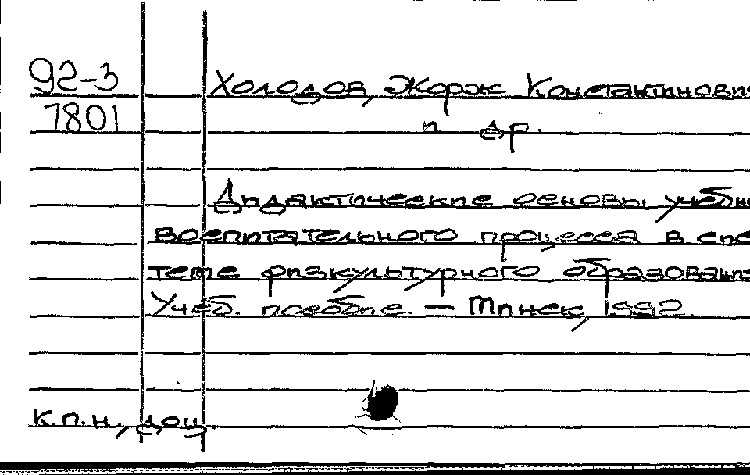 92-3 Холодов, Жорж Константинови
7801 и др.
Дидактические основы учебн
воспитательного процесса в спе
теме физкультурного образован
Учеб. пособие. — Минск, 1992.
к.п.н., доц.